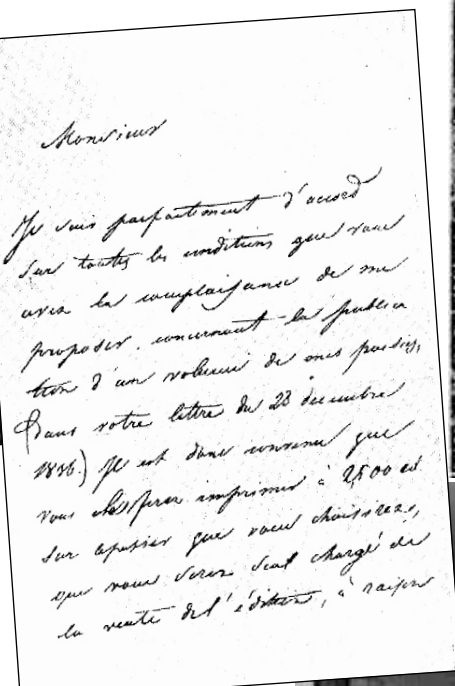 Monsieur
Je suis parfaitement d'accord
sur toutes les conditions que vous
avez la complaisance de me
proposer concernant la publica
tion d'un volume de mes poésies,
(Dans votre lettre du 23 décembre
1836.) Il est donc convenu que
vous les ferez imprimer à 2500 ex
sur le papier que vous choisirez,
que vous serez seul chargé de
la vente de l'édition, à raison